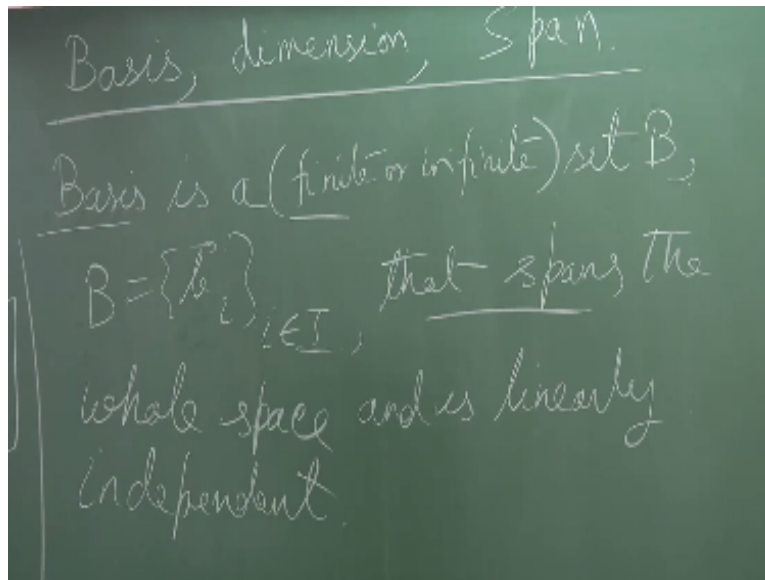 Basis, dimension, Span.
Basis is a (finite or infinite) set B,
B = {b⃗ᵢ}ᵢ∈I, that spans the
whole space and is linearly
independent.